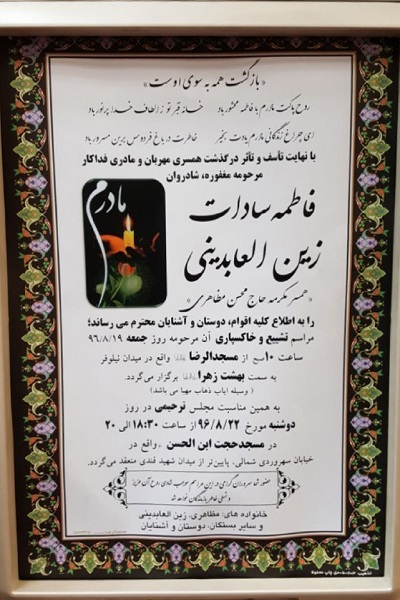 « بازگشت همه به سوی اوست »
روح پاکت مادرم با فاطمه محشور باد خانه قبر تو از الطاف خدا پرنور باد
ای چراغ زندگانی مادرم یادت بخیر خاطرت در باغ فردوس برین مسرور باد
با نهایت تأسف و تأثر درگذشت همسری مهربان و مادری فداکار
مرحومه مغفوره، شادروان
مادرم
فاطمه سادات
زین العابدینی
« همسر مکرمه حاج محسن مظاهری »
را به اطلاع کلیه اقوام، دوستان و آشنایان محترم می رساند؛
مراسم تشییع و خاکسپاری آن مرحومه روز جمعه ۹۶/۸/۱۹
ساعت ۱۰ صبح از مسجدالرضا واقع در میدان نیلوفر
به سمت بهشت زهرا برگزار می گردد.
( وسیله ایاب ذهاب مهیا می باشد )
به همین مناسبت مجلس ترحیمی در روز
دوشنبه مورخ ۹۶/۸/۲۲ از ساعت ۱۸:۳۰ الی ۲۰
در مسجدحجت ابن الحسن واقع در
خیابان سهروردی شمالی، پایین‌تر از میدان شهید قندی منعقد می گردد.
حضور شما سروران گرامی در این مراسم موجب شادی روح آن عزیز
و تسلی خاطر بازماندگان خواهد شد
خانواده های: مظاهری، زین العابدینی
و سایر بستگان، دوستان و آشنایان